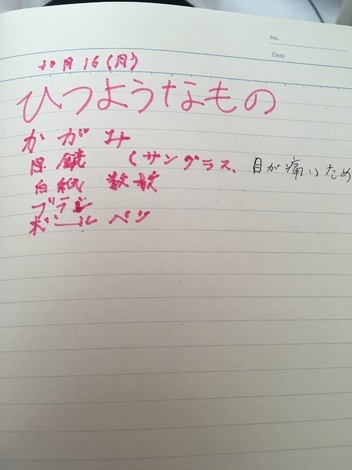 No.
Date
10月16(月)
ひつようなもの
かがみ
眼鏡 (サングラス、目が痛いため
白紙 数枚
ブラシ
ボールペン